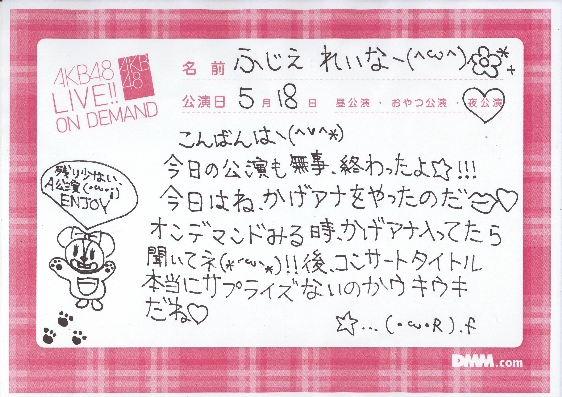 AKB48
LIVE!!
ON DEMAND
AKB
48
名前 ふじえ れいなー(^ω^)
公演日 5月18日 昼公演・おやつ公演・夜公演
こんばんはヽ(^v^*)
今日の公演も無事、終わったよ☆!!!
今日はね、かげアナをやったのだ♡
オンデマンドみる時、かげアナ入ってたら
聞いてネ(*˘ω˘*)!!後、コンサートタイトル
本当にサプライズないのかウキウキ
だね♡
☆...(・ω・R).f
残り少ない、
A公演(・ω・j)
ENJOY
DMM.com